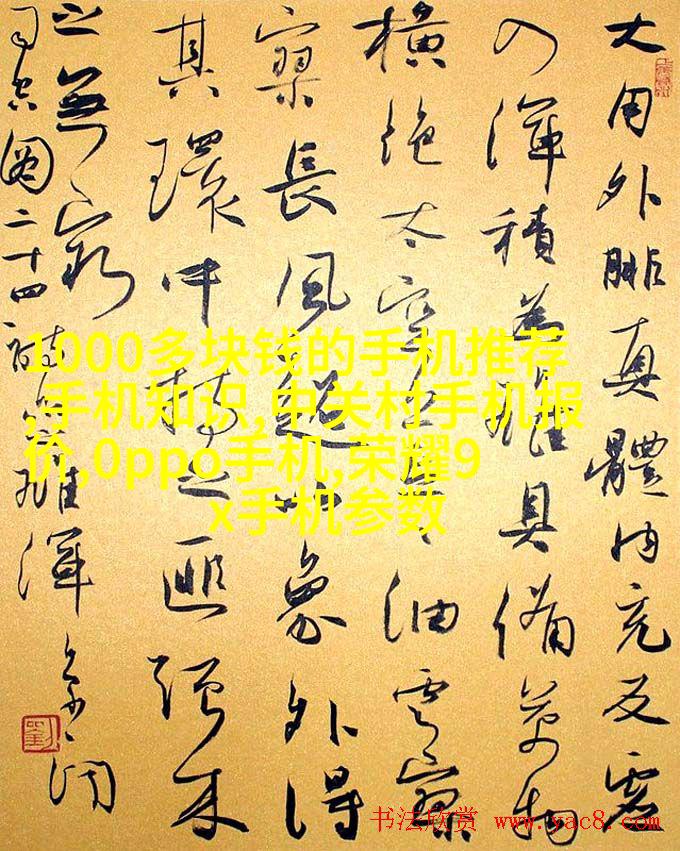 大用外腓真體内充反虛
入渾積為雄具備萬物
橫絶太空荒荒油雲寥
寥長風超以象外得
其環中持之匪强来
之無窮
司空圖二十四詩品雄渾
1000多块钱的手机推荐
,手机知识,中关村手机报
价,0ppo手机,荣耀9
x手机参数
书法欣赏 www.yac8.com